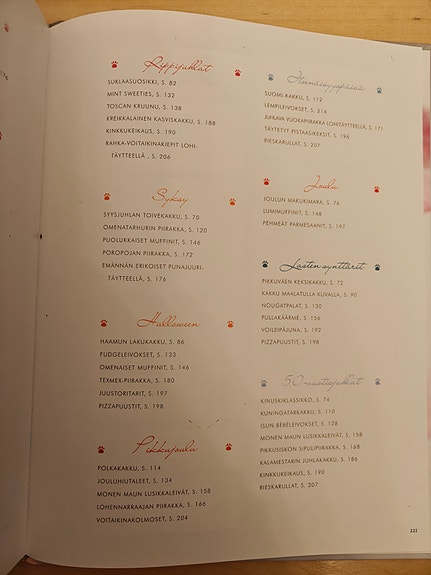 Rippijuhlat
SUKLAASUOSIKKI, S. 82
MINT SWEETIES, S. 132
TOSCAN KRUUNU, S. 138
KREIKKALAINEN KASVISKAKKU, S. 188
KINKKUKEIKAUS, S. 190
RAHKA-VOITAIKINAKIEPIT LOHI-
TÄYTTEELLÄ , S. 206
Syksy
SYYSJUHLAN TOIVEKAKKU, S. 70
OMENATARHURIN PIIRAKKA, S. 120
PUOLUKKAISET MUFFINIT, S. 146
POROPOJAN PIIRAKKA, S. 172
EMÄNNÄN ERIKOISET PUNAJUURI-
TÄYTTEELLÄ, S. 176
Halloween
HAAMUN LAKUKAKKU, S. 86
FUDGELEIVOKSET, S. 133
OMENAISET MUFFINIT, S. 146
TEXMEX-PIIRAKKA, S. 180
JUUSTORITARIT, S. 197
PIZZAPUUSTIT, S. 198
Pikkujoulu
POLKAKAKKU, S. 114
JOULUHIUTALEET, S. 134
MONEN MAUN LUSIKKALEIVÄT, S. 158
LOHENNARRAAJAN PIIRAKKA, S. 166
VOITAIKINAKOLMOSET, S. 204
Itsenäisyyspäivä
SUOMI-KAKKU, S. 112
LEMPILEIVOKSET, S. 214
JUHLAVA VUOKAPIIRAKKA LOHITÄYTTEELLÄ, S. 171
TÄYTETYT PISTAASIKEKSIT, S. 196
RIESKARULLAT, S. 207
Joulu
JOULUN MAKUKIMARA, S. 76
LUMIMUFFINIT, S. 148
PEHMEÄT PARMESAANIT, S. 197
Lasten synttärit
PIKKUVÄEN KEKSIKAKKU, S. 72
KAKKU MAALATULLA KUVALLA, S. 90
NOUGATPALAT, S. 130
PULLAKÄÄRME, S. 156
VOILEIPÄJUNA, S. 192
PIZZAPUUSTIT, S. 198
50-vuotisjuhlat
KINUSKIKLASSIKKO, S. 74
KUNINGATARKAKKU, S. 110
ISUN BEBELEIVOKSET, S. 128
MONEN MAUN LUSIKKALEIVÄT, S. 158
PIKKUSISKON SIPULIPIIRAKKA, S. 168
KALAMESTARIN JUHLAKAKKU, S. 186
KINKKUKEIKAUS, S. 190
RIESKARULLAT, S. 207
221